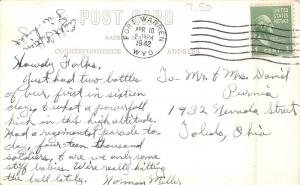 7.50
POST CARD
FORT WARREN
APR 10
1942
WYO.
UNITED STATES
POSTAGE
1 CENT
CORRESPONDENCE
ADDRESS
Howdy Folks,
Just had two bottles
of beer, first in sixteen
days, & what a powerfull
kick in this high altitude.
Had a regimental parade to-
day, four-teen thousand
soldiers, & are we only some
stuff babies. We're really hitting
the ball lately.
Norman Miller
To Mr. & Mrs. David
Purnia
1932 Nevada Street
Toledo, Ohio